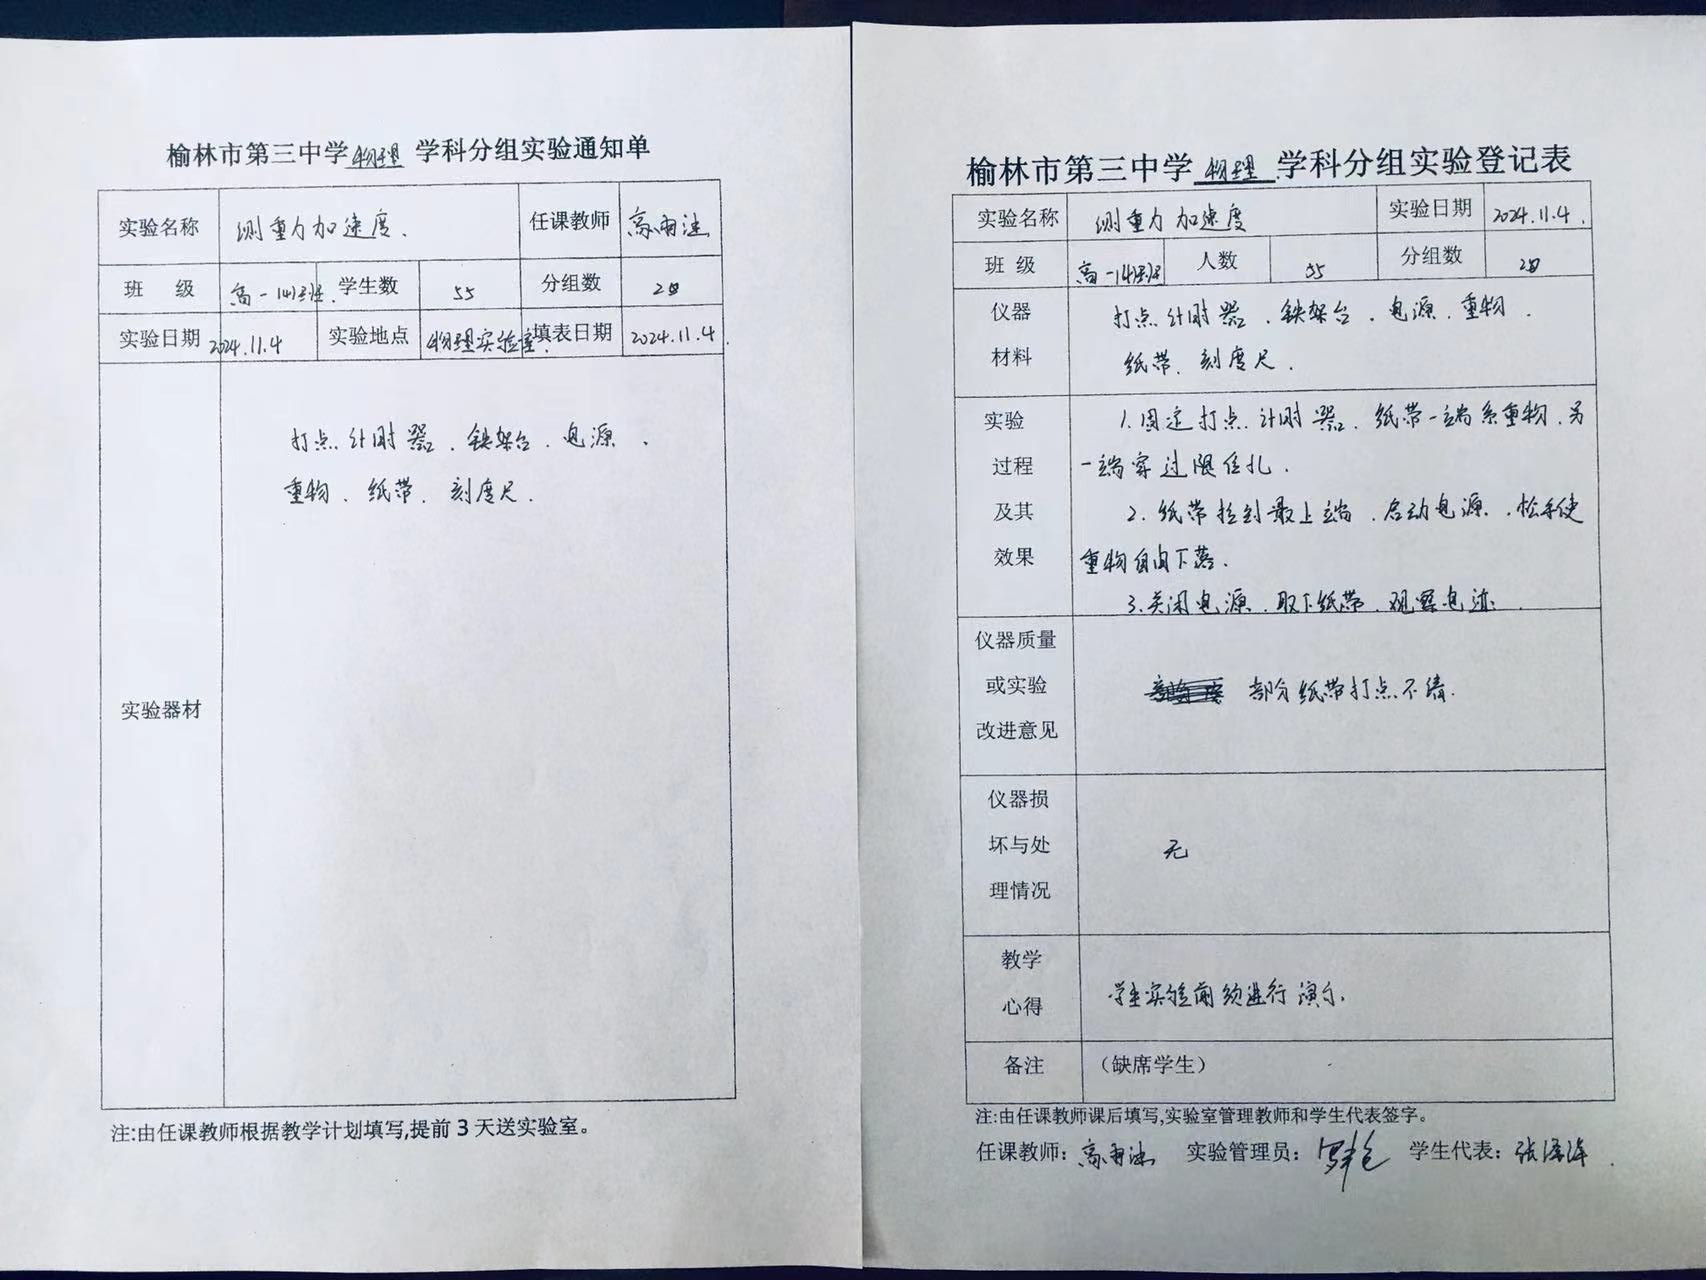 榆林市第三中学物理 学科分组实验通知单
实验名称 测重力加速度. 任课教师 高雨
班 级 高一14班 学生数 55 分组数 28
实验日期 2024.11.4 实验地点 物理实验室 填表日期 2024.11.4
打点计时器、铁架台、电源、
重物、纸带、刻度尺.
实验器材
注:由任课教师根据教学计划填写,提前 3 天送实验室。
榆林市第三中学 物理 学科分组实验登记表
实验名称 测重力加速度 实验日期 2024.11.4.
班 级 高一14班 人数 55 分组数 28
仪器 打点计时器、铁架台、电源、重物、
材料 纸带、刻度尺.
实验 1.固定打点计时器、纸带一端系重物、另
过程 一端穿过限位孔.
及其 2.纸带拉到最上端、启动电源、松手使
效果 重物自由下落.
3.关闭电源、取下纸带、观察电迹.
仪器质量
或实验 部分纸带打点不清.
改进意见
仪器损
坏与处 无
理情况
教学
心得 学生实验前须进行演示.
备注 （缺席学生）
注:由任课教师课后填写,实验室管理教师和学生代表签字。
任课教师: 高雨 实验管理员: 学生代表: 张泽